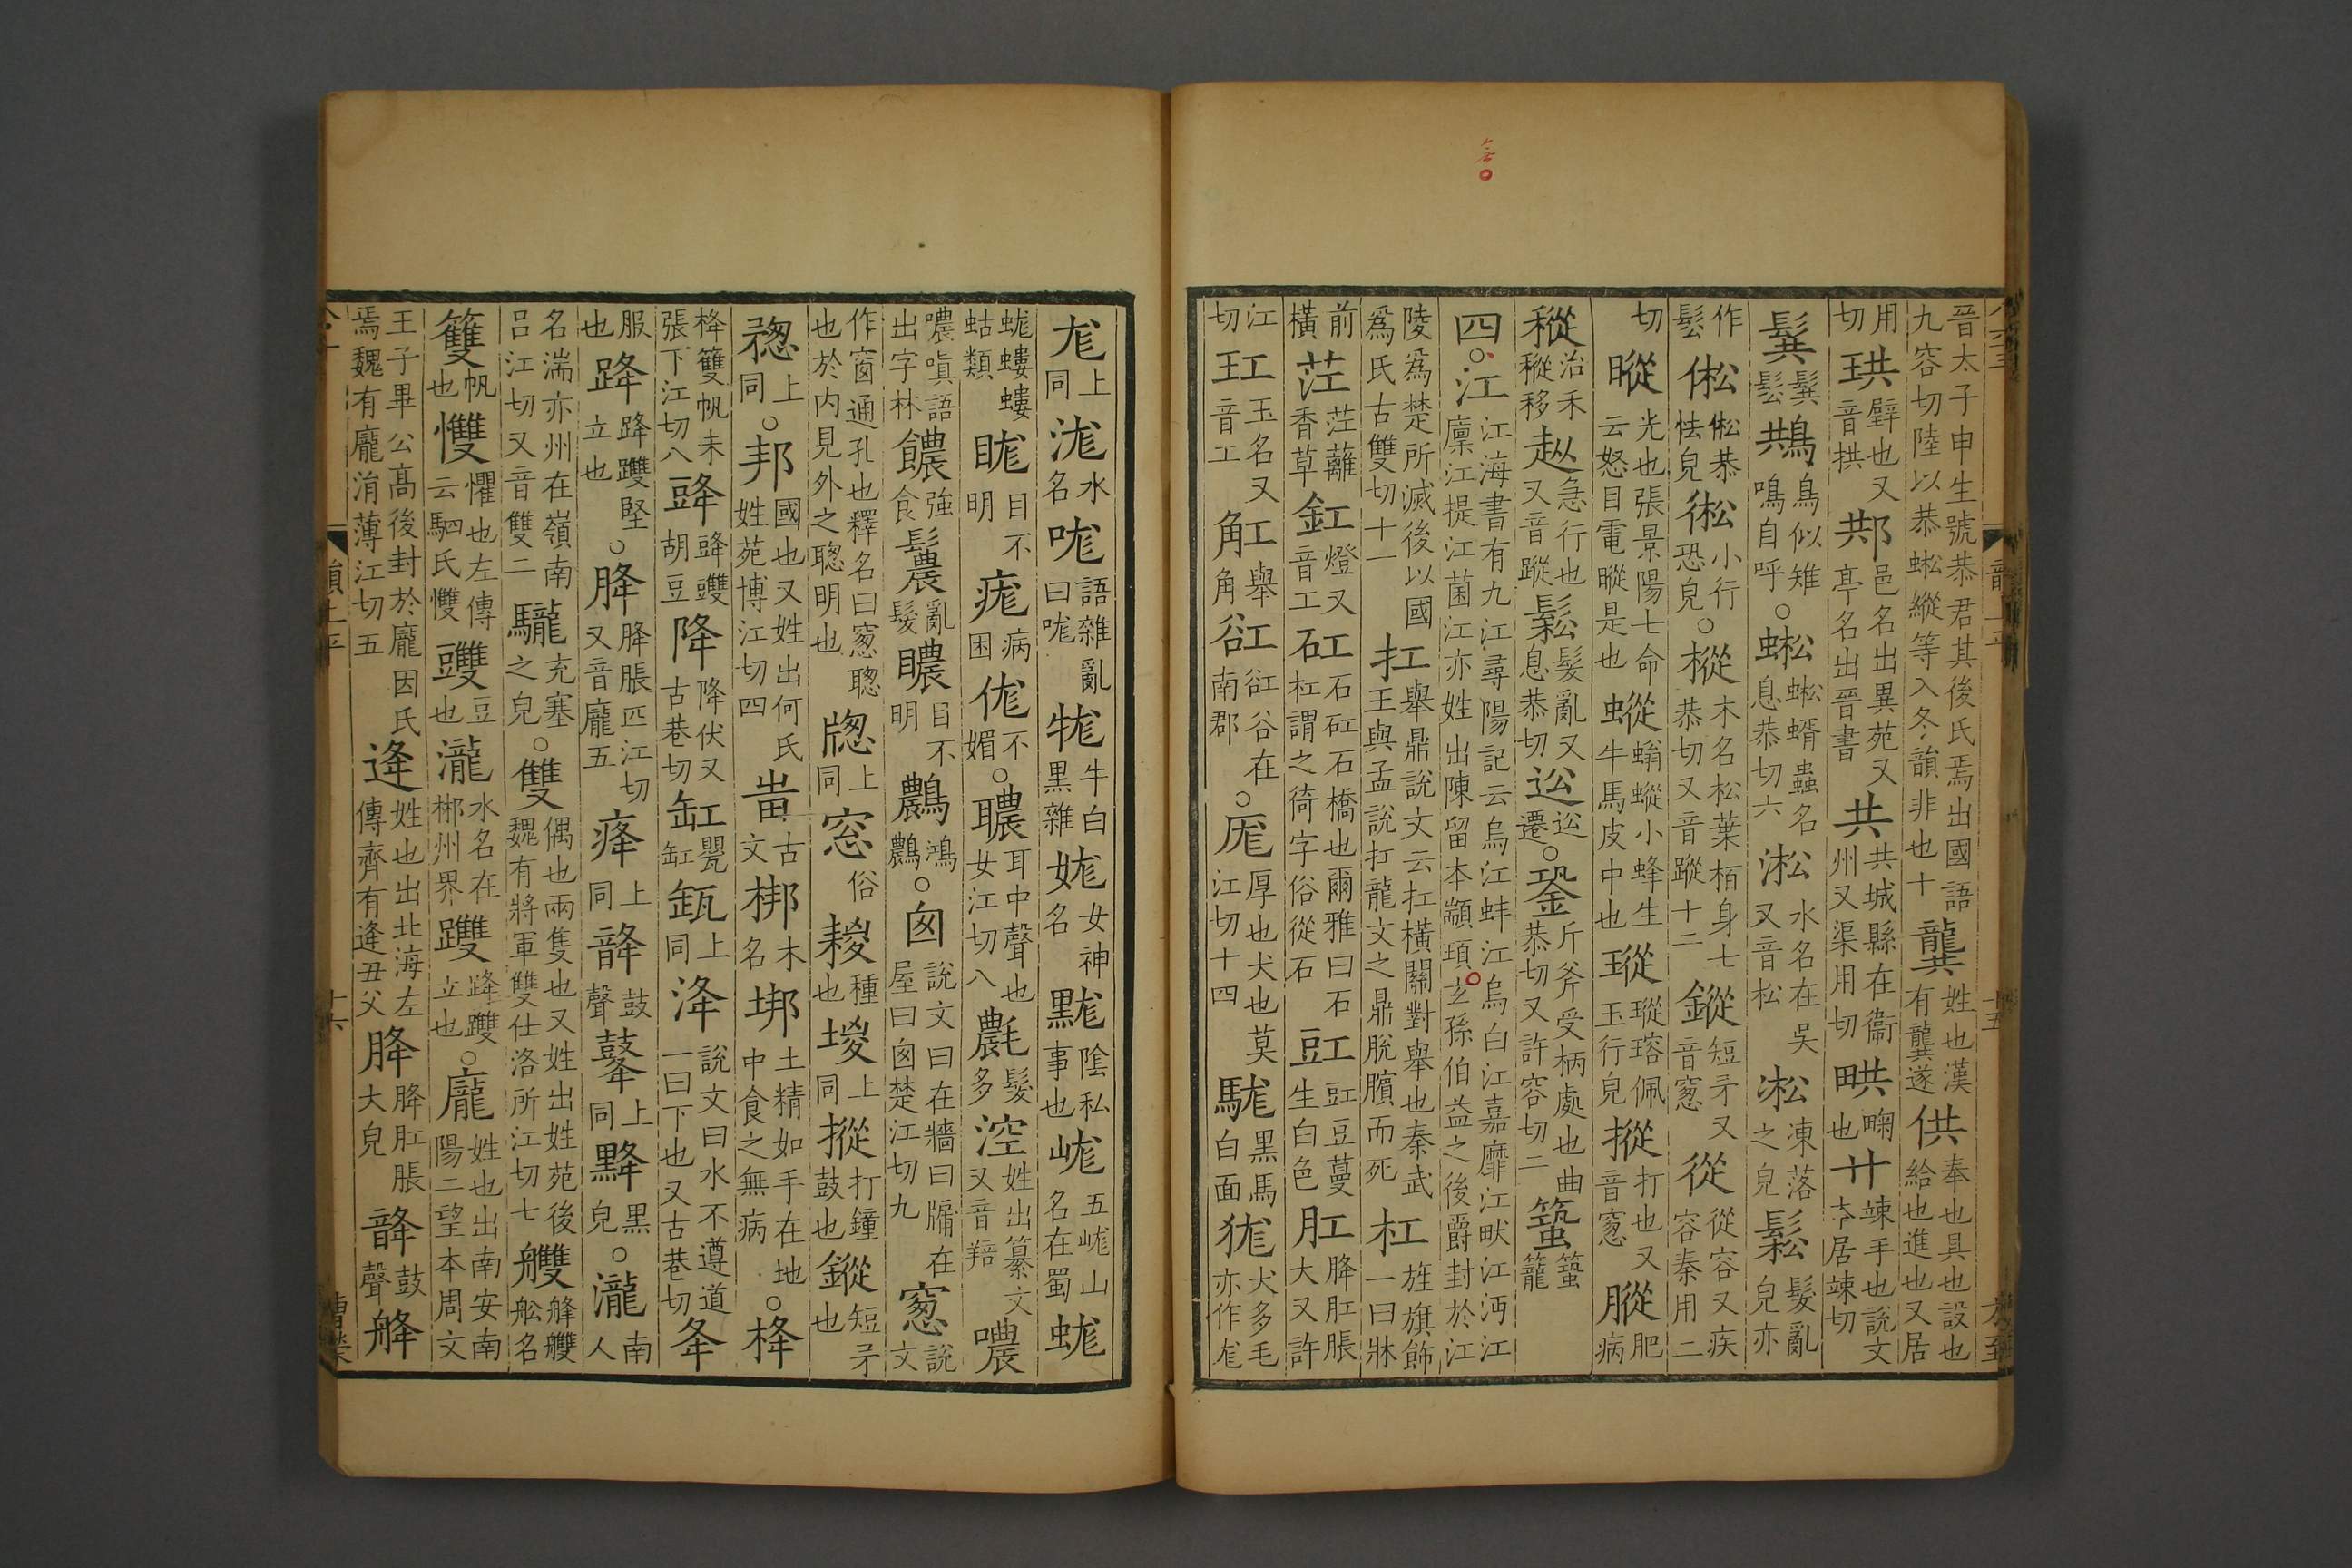 晉太子申生號恭君其後氏焉出國語九容切陸以恭蜙縱等入冬韻非也十龔姓也漢有龔遂供奉也具也設也給也進也又居
用切珙璧也又音拱㓋邑名出異苑又亭名出晉書共共城縣在衞州又渠用切㫒𤱶也廾竦手也說文居竦切
䰸鬆䰸䳍鳥似雉鳴自呼○蜙蜙蝑蟲名息恭切六淞水名在吳又音松凇凍落之皃鬆髮亂皃亦
作鬆㣝㣝恭怯皃小行恐皃○樅木名松葉栢身七恭切又音蹤十二鏦短矛又音窻從從容又疾容秦用二
切瞛光也張景陽七命云怒目電瞛是也螉䗥小蜂生牛馬皮中也瑽瑽瑢佩玉行皃摐打也又音窻肥病
治禾䅮移急行也又音蹤鬆髮亂又息恭切○銎斤斧受柄處也曲恭切又許容切二蛩籠
四○江江海書有九江尋陽記云烏江蚌江烏白江嘉靡江畎江沔江廩江提江菌江亦姓出陳留本顓頊玄孫伯益之後爵封於江
陵爲楚所滅後以國爲氏古雙切十一扛舉鼎說文云扛橫關對舉也秦武王與孟說扛龍文之鼎脫臏而死杠旌旗飾一曰牀
前橫茳茳蘺香草釭燈又音工矼石矼石橋也爾雅曰石杠謂之徛字俗從石豇豇豆蔓生白色肛胮肛脹大又許
江切玒玉名又音工舡舉角谾谾谷在南郡○厖厚也大也莫江切十四駹黑馬白面狵犬多毛亦作尨
尨上同浝水名哤語雜亂曰哤牻牛白黑雜娏女神名䵨陰私事也峞五峞山名在蜀蛖
蛖螻螻蛄類䀲目不明痝病困不媚○聬耳中聲也女江切八髮多涳姓出纂文又音羫噥
噥嗔語出字林饢強食鬞亂髮䁸目不明鸗鴻鸗○囪說文曰在牆曰牖在屋曰囪楚江切九窻說文
作窗通孔也釋名曰窻聰也於内見外之聰明也牎上同窓俗䎫種也堫上同摐打鐘鼓也鏦短矛也
上同○邦國也又姓出何氏姓苑博江切四㞷古文梆木名垹土精如手在地中食之無病○栙
栙䉶帆未張下江切八䜶䜶䝄胡豆降降伏又古巷切缸甖缸瓨上同洚說文曰水不遵道一曰下也又古巷切夅
服也䟺䟺䠱竪立也○胮胮脹匹江切又音龐五痝上同䪦鼓聲上同黑皃○瀧南人
名湍亦州在嶺南呂江切又音雙二龓充塞之皃○雙偶也兩隻也又姓出姓苑後魏有將軍雙仕洛所江切七艭䑫艭舩名
䉶帆也㦼懼也左傳云駟氏㦼䝄豆也瀧水名在郴州界䠱䟺䠱立也○龐姓也出南安南陽二望本周文
王子畢公高後封於龐因氏焉魏有龐涓薄江切五逄姓也出北海左傳齊有逄丑父胮胮肛脹大皃䪦鼓聲䑫